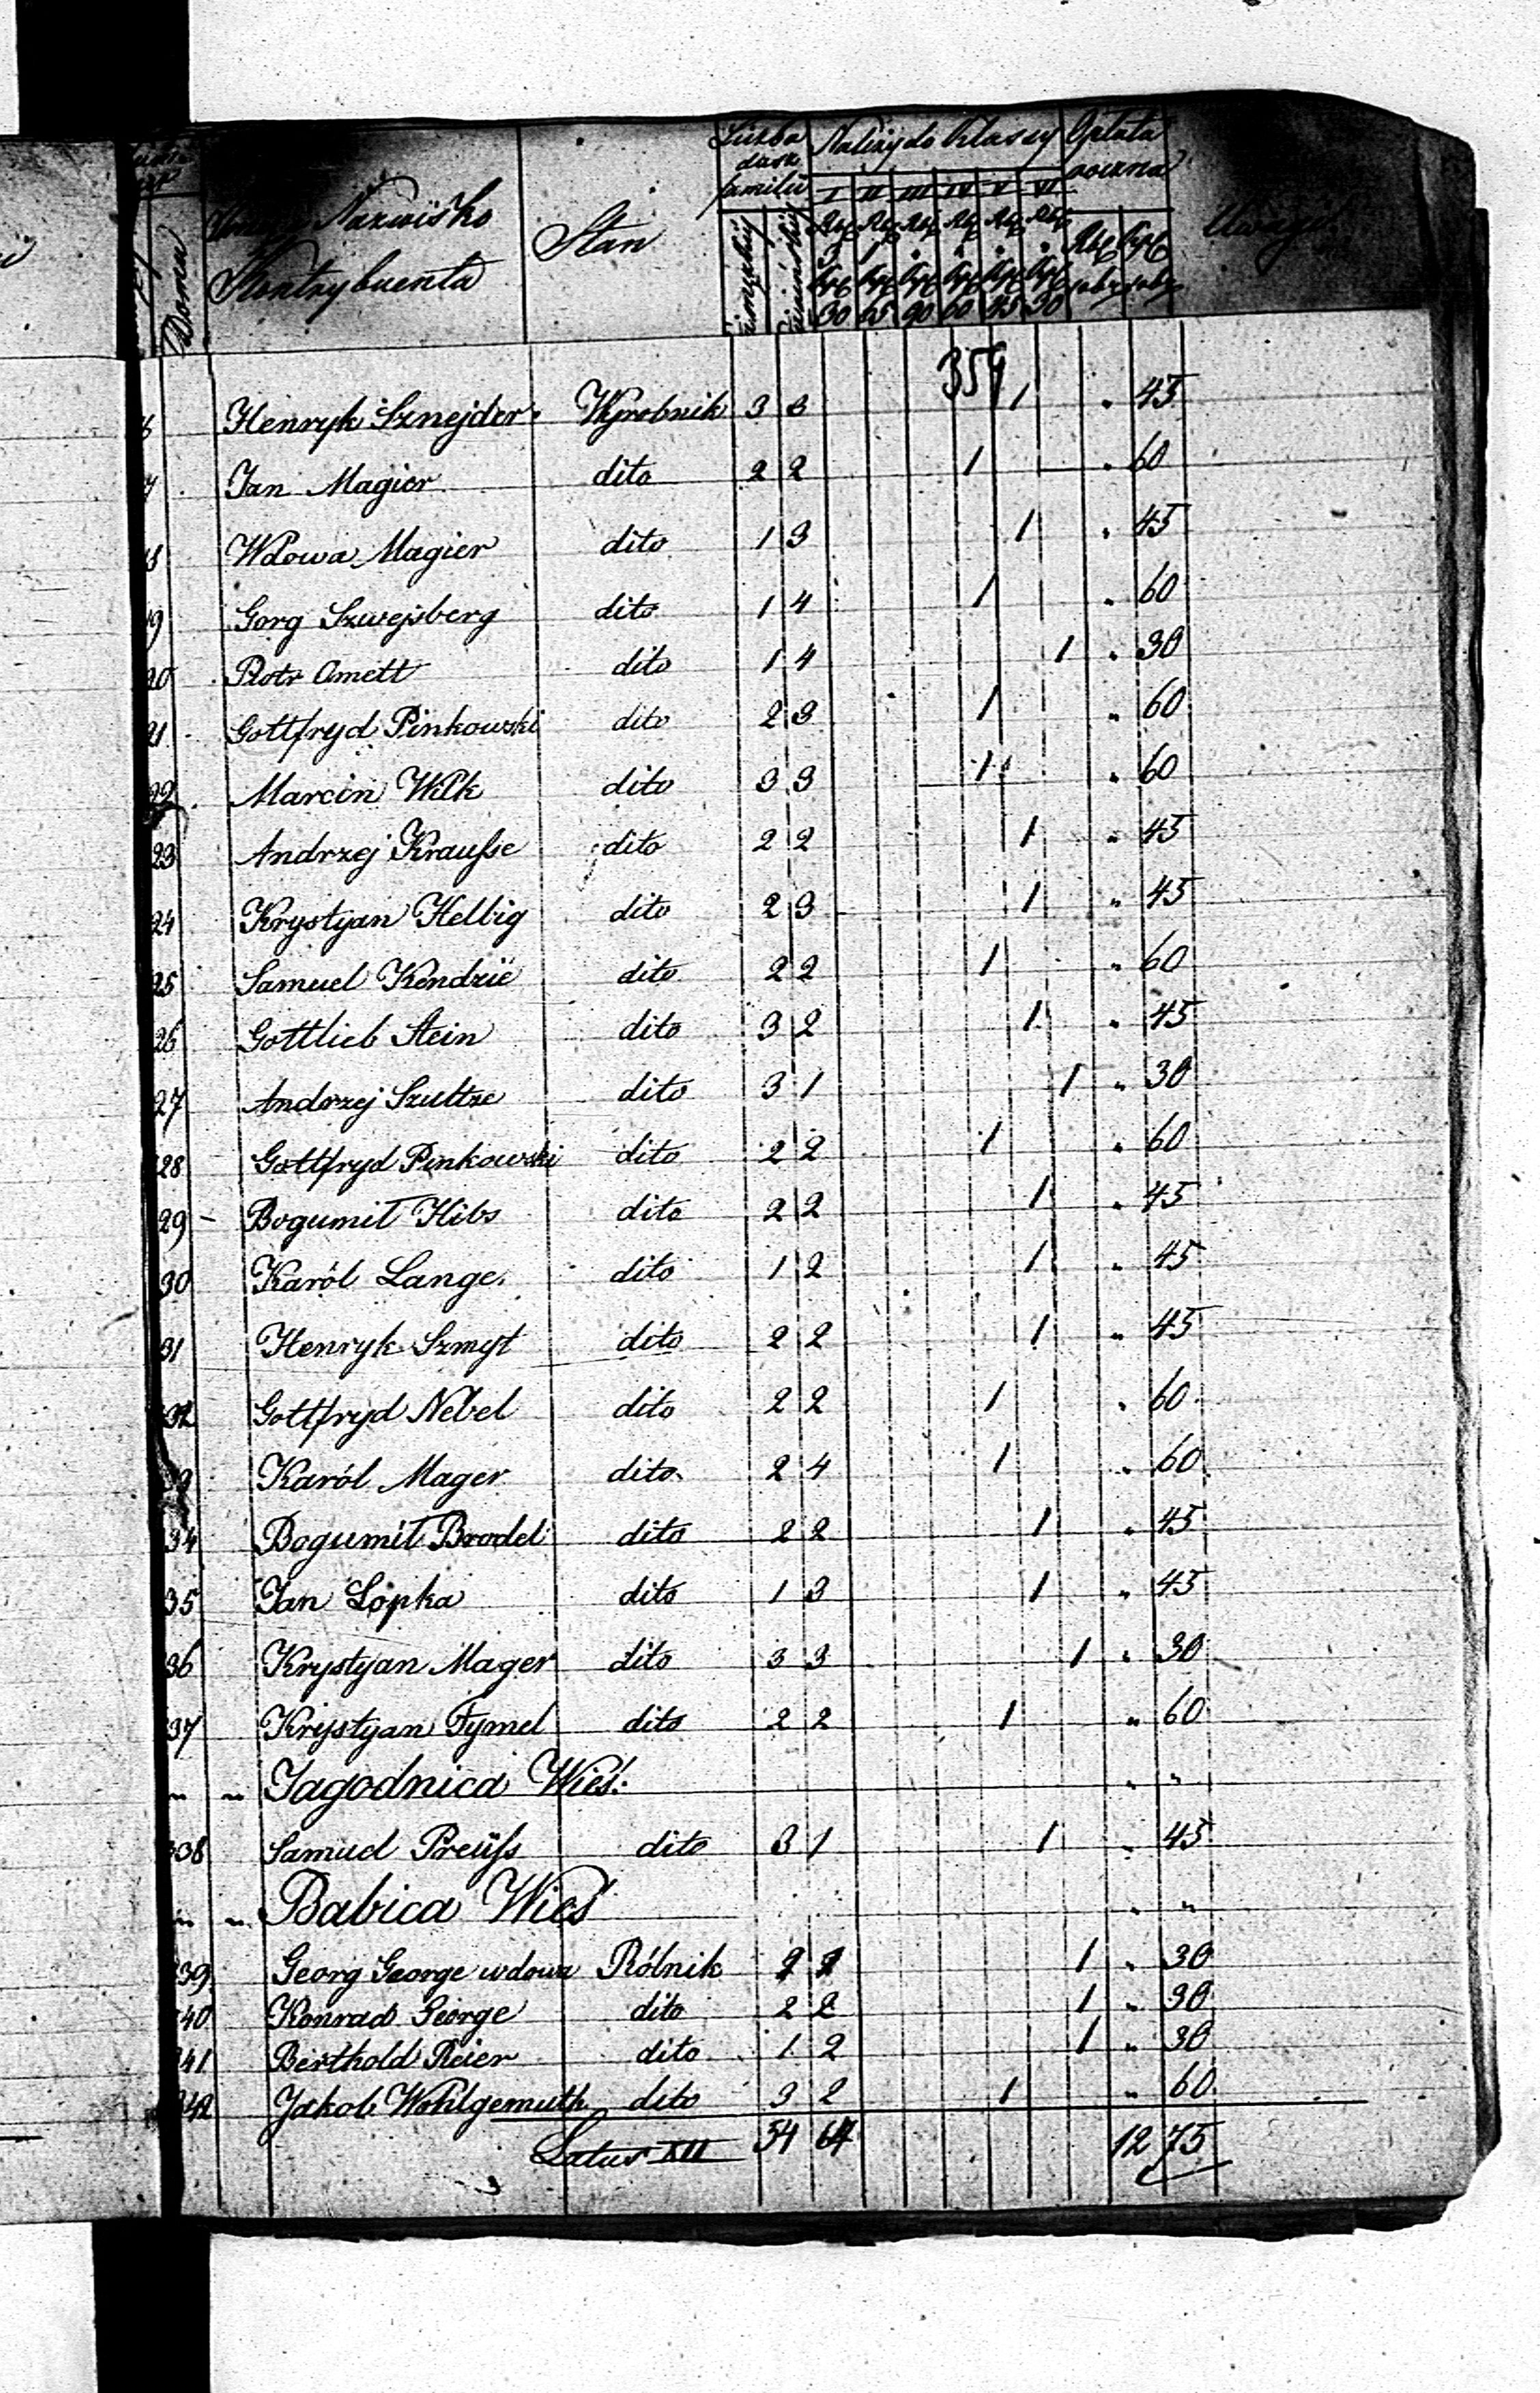 Liczba Należy do Klassy Opłata
dusz roczna
familii I II III IV V VI
Nazwisko Stan Uwagi
Kontrybuenta Rbs
Domu
30 15 90 60 45 30
354
Henryk Sznejder Wyrobnik 3 3 1 " 45
Jan Magier dito 2 2 1 " 60
Wdowa Magier dito 1 3 1 " 45
19 Gorg Szwejsberg dito 1 4 1 " 60
20 Piotr Amett dito 1 4 1 " 30
21 Gottfryd Pinkowski dito 2 3 1 " 60
22 Marcin Wilk dito 3 3 1 " 60
23 Andrzej Krausse dito 2 2 1 " 45
24 Krystyan Helbig dito 2 3 1 " 45
25 Samuel Kendzie dito 2 2 1 " 60
26 Gottlieb Stein dito 3 2 1 " 45
27 Andrzej Szultze dito 3 1 1 " 30
28 Gottfryd Pinkowski dito 2 2 1 " 60
29 – Bogumił Hibs dito 2 2 1 " 45
30 Karól Lange dito 1 2 1 " 45
31 Henryk Szmyt dito 2 2 1 " 45
32 Gottfryd Nebel dito 2 2 1 " 60
33 Karól Mager dito 2 4 1 " 60
34 Bogumił Brodel dito 2 2 1 " 45
35 Jan Lopka dito 1 3 1 " 45
36 Krystyan Mager dito 3 3 1 " 30
37 Krystyan Tymel dito 2 2 1 " 60
" " Jagodnica Wieś. " "
38 Samuel Preüss dito 3 1 1 " 45
" " Babica Wieś " "
39 Georg George wdowa Rólnik 2 2 1 " 30
40 Konrad George dito 2 2 1 " 30
41 Berthold Reier dito 1 2 1 " 30
342 Jakob Wohlgemuth dito 3 2 1 " 60
Latus XII 54 64 12 75